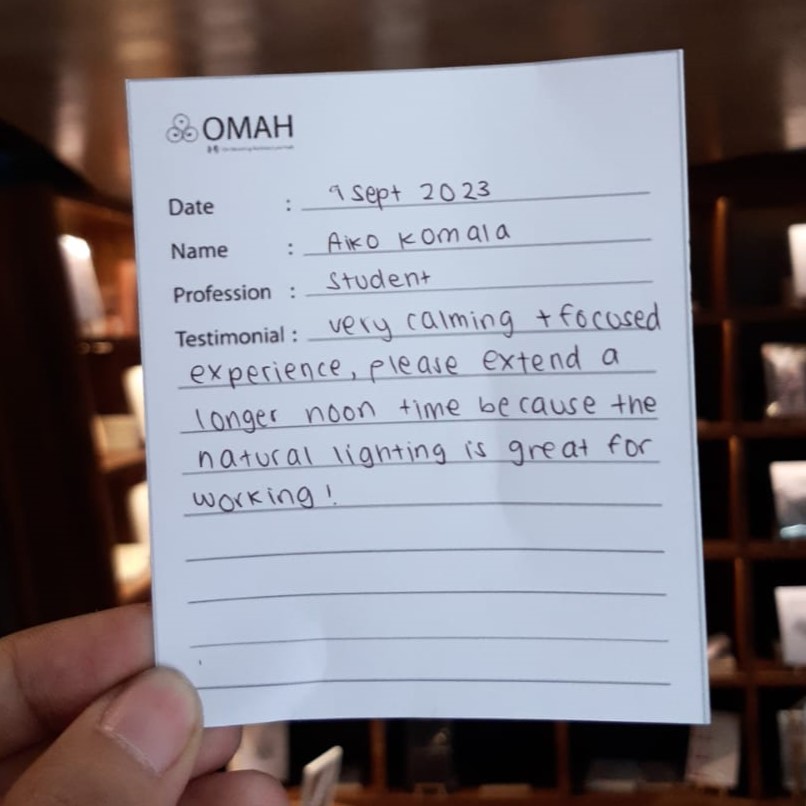 OMAH
Date : 9 Sept 2023
Name : Aiko Komala
Profession : Student
Testimonial : very calming + focused
experience, please extend a
longer noon time because the
natural lighting is great for
working!